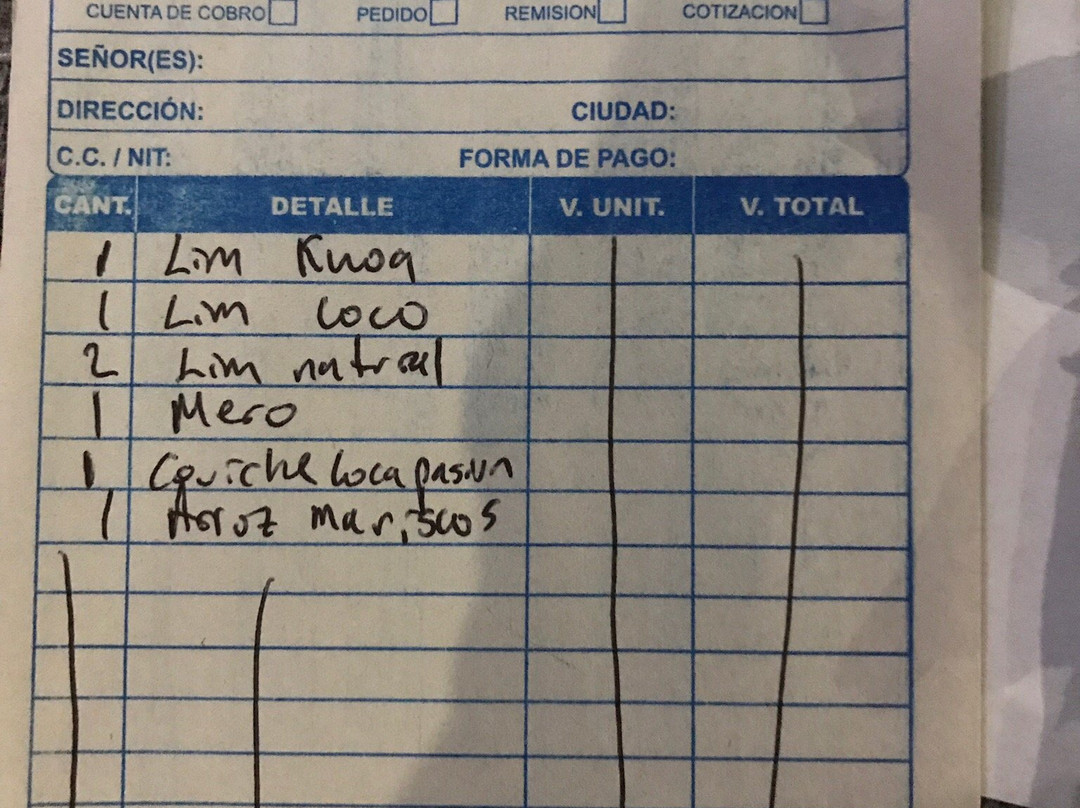 CUENTA DE COBRO PEDIDO REMISION COTIZACION
SEÑOR(ES):
DIRECCIÓN: CIUDAD:
C.C. / NIT: FORMA DE PAGO:
CANT. DETALLE V. UNIT. V. TOTAL
1 Lim
1 Lim coco
2 Lim natral
1 Mero
1 loca pasiun
1 Arroz Mariscos